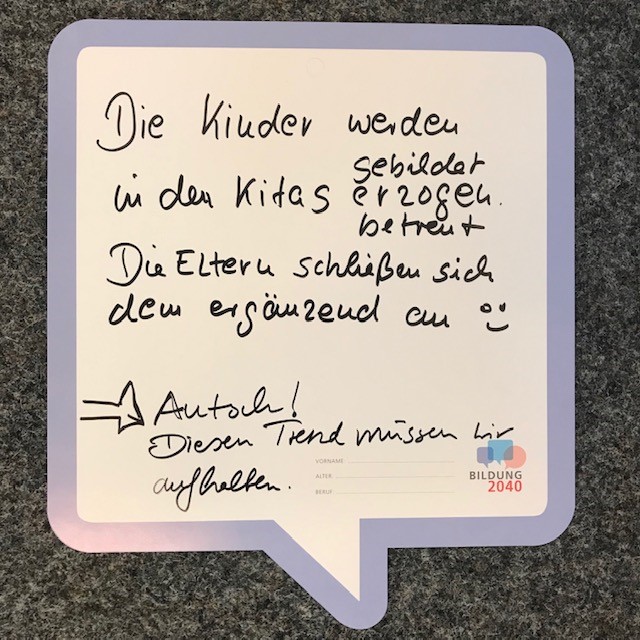 Die Kinder werden
gebildet
in den Kitas erzogen.
betreut
Die Eltern schließen sich
dem ergänzend an
Autsch!
Diesen Trend müssen wir
aufhalten.
VORNAME
ALTER
BERUF
BILDUNG
2040